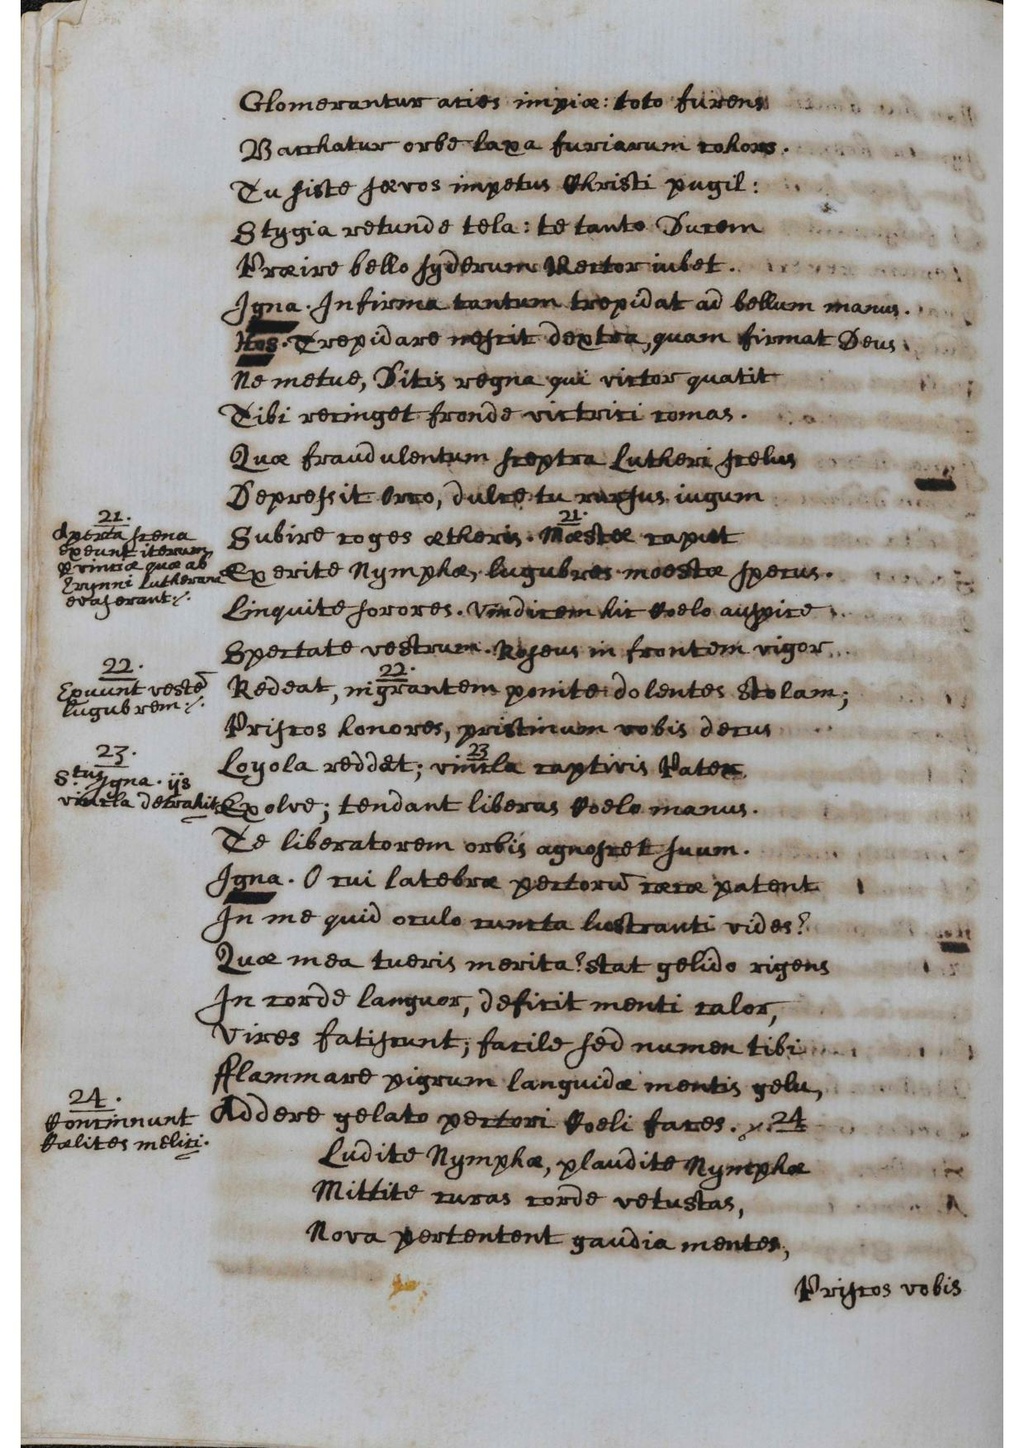 Glomerantur acies impiæ: toto furens
Bacchatur orbe laxa furiarum cohors.
Tu siste sævos impetus Christi pugil:
Stygia retunde tela: te tanto Ducem
Præire bello syderum Rector iubet.
Igna. Infirma tantum trepidat ad bellum manus.
Hos. Trepidare nescit dextra, quam firmat Deus
Ne metue, Ditis regna qui victor quatit
Tibi recinget fronde victrici comas.
Quæ fraudulentum sceptra Lutheri scelus
Depressit Orco, dulce tu rursus iugum
21.
Subire coges ætheris. Mæstæ caput
Exerite Nymphæ, lugubres moestæ specus.
Linquite sorores. Vindicem hic Coelo auspice
Spectate vestrum. Roseus in frontem vigor
22.
Redeat, nigrantem ponite dolentes Stolam;
Priscos honores, pristinum vobis decus
23
Loyola reddet; vincla captivis Pater
Exolve; tendant liberas Coelo manus.
Te liberatorem orbis agnoscet suum.
Igna. O cui latebræ pectorū cæcæ patent
In me quid oculo cuncta lustranti vides?
Quæ mea tueris merita? stat gelido rigens
In corde languor, deficit menti calor,
Vires fatiscunt; facile sed numen tibi
Flammare pigrum languidæ mentis gelu,
Addere gelato pectori Coeli faces. 24
Ludite Nymphæ, plaudite Nymphæ
Mittite curas corde vetustas,
Nova pertentent gaudia mentes,
Priscos vobis
21.
Aperta scena
exeunt iterum
provinciæ quæ ab
Erynni Lutherana
evaserant
22.
Exuunt vestē
lugubrem
23.
S.tus Igna. ijs
vincla detrahit
24.
Continnunt
Cælites melici.